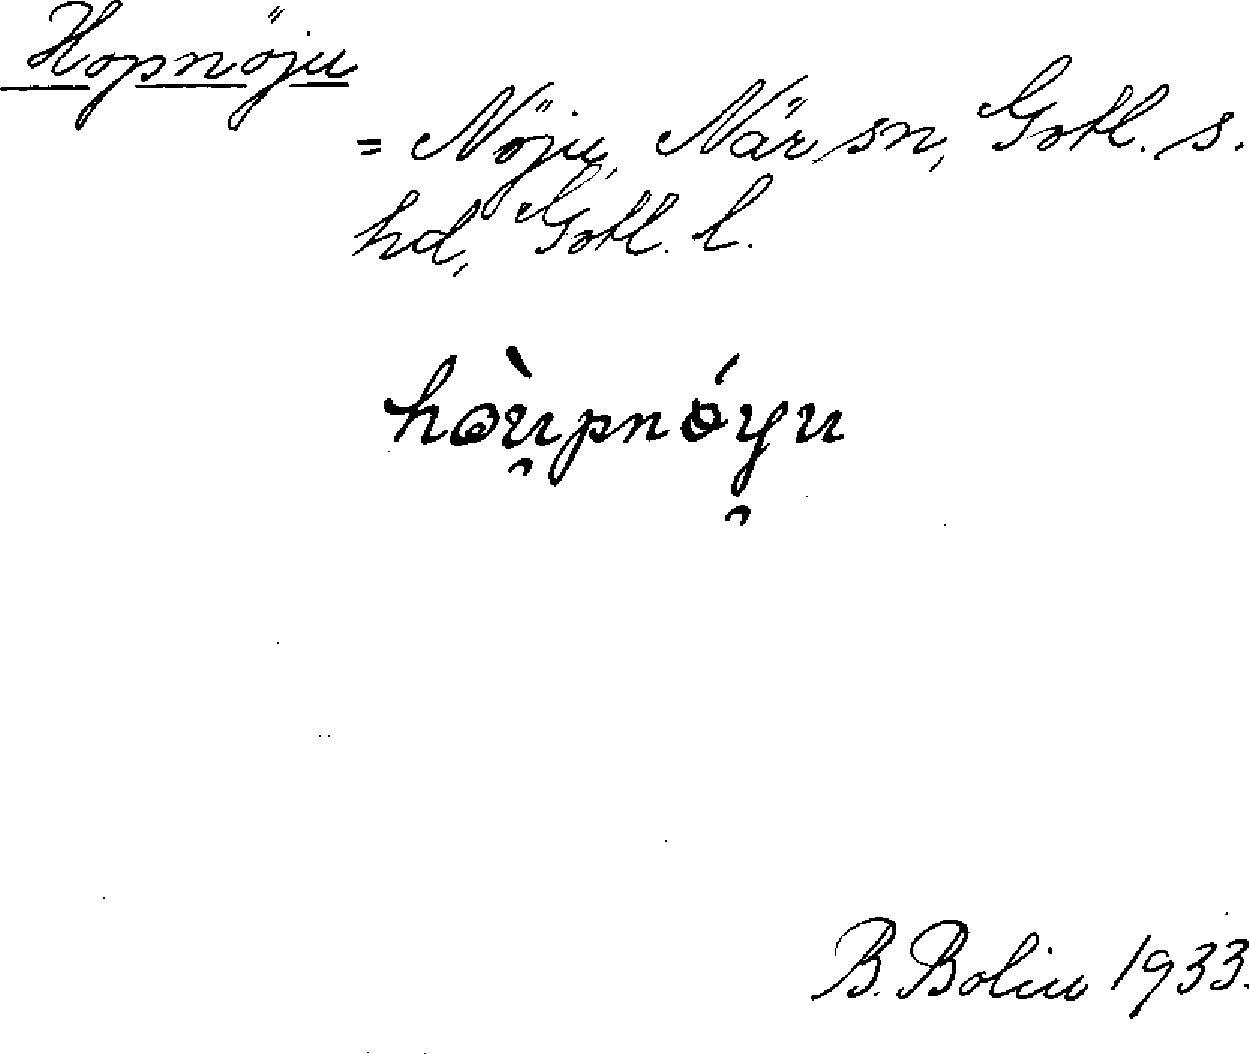 Hopnöju
= Nöju, När sn, Gotl. s.
hd, Gotl. l.
hòu̯pnóy̯u
B. Bolin 1933.